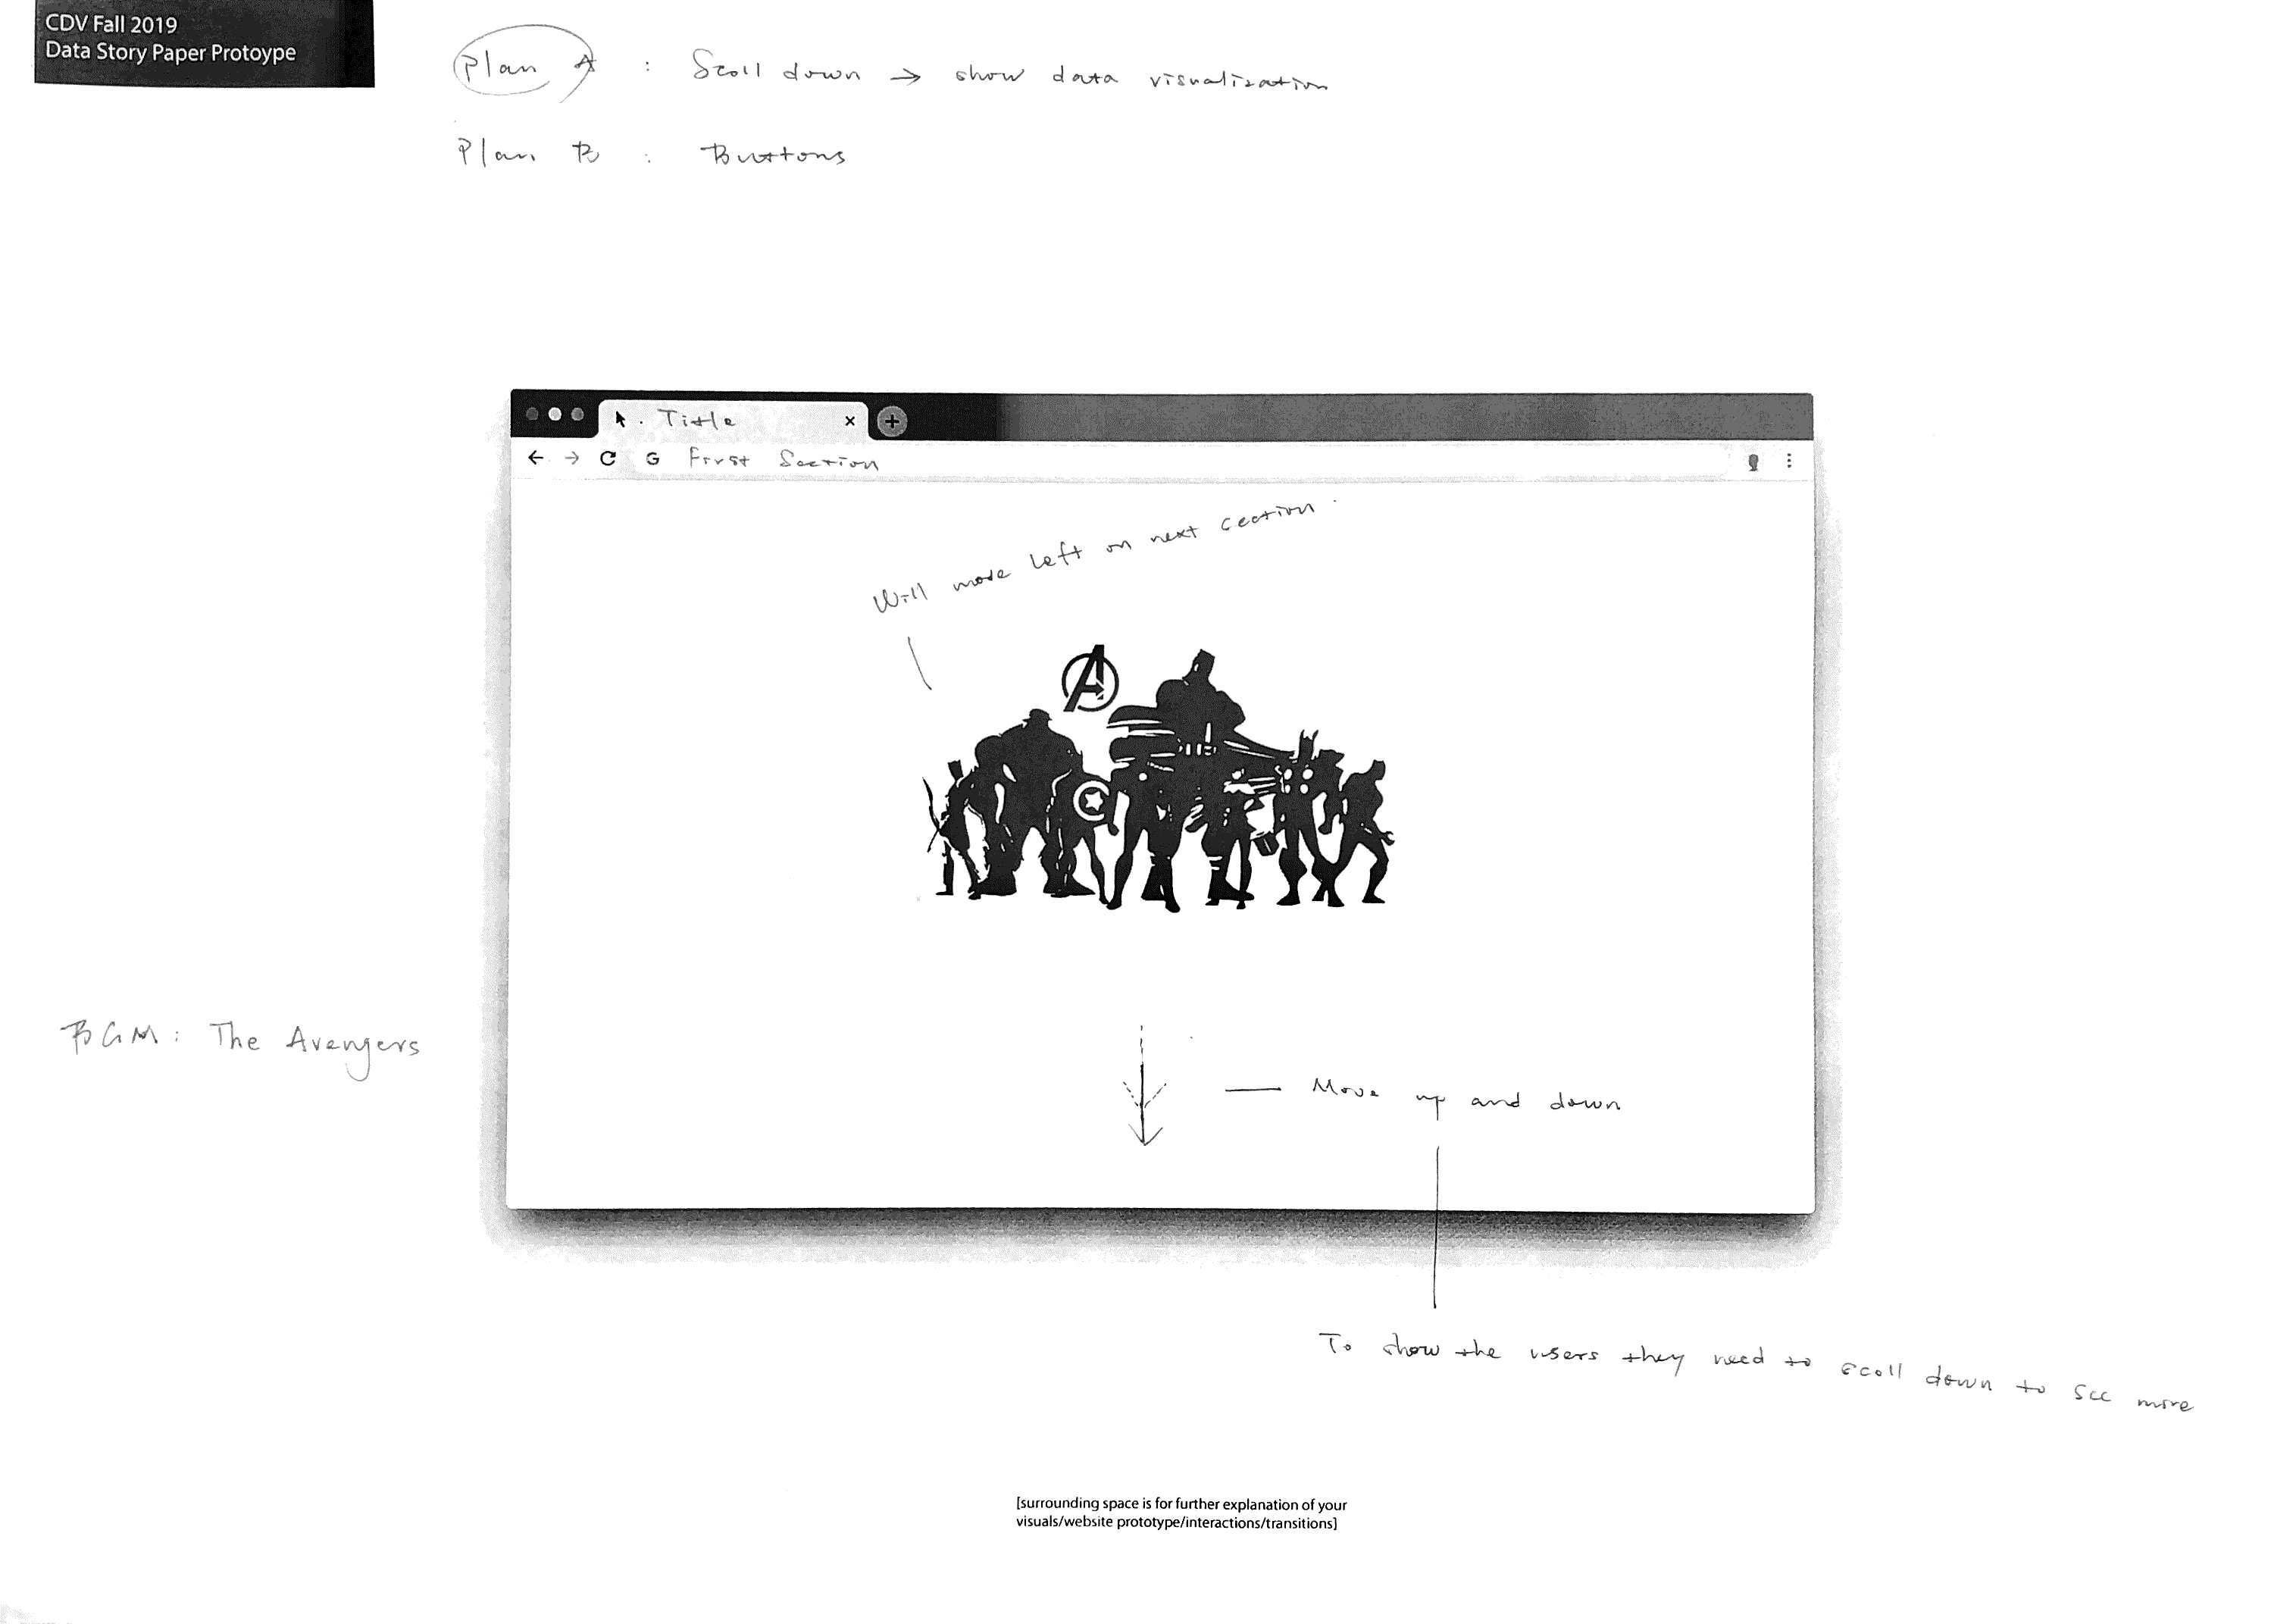 CDV Fall 2019
Data Story Paper Protoype
Plan A : Scoll down → show data visualization
Plan B : Buttons
Title
G First Section
Will move left on next cection
A
BGM : The Avengers
— Move up and down
To show the users they need to scoll down to see more
[surrounding space is for further explanation of your
visuals/website prototype/interactions/transitions]